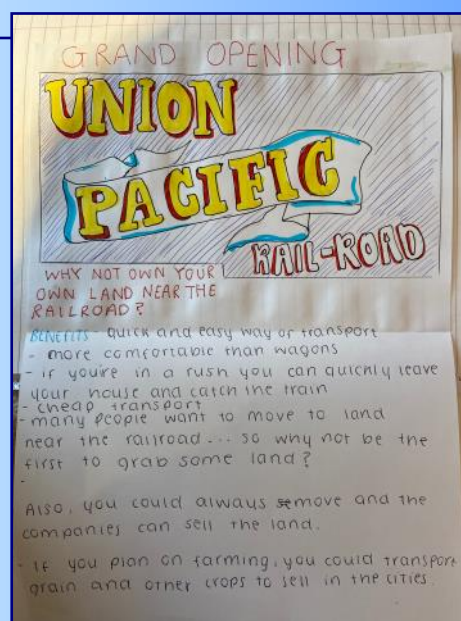 GRAND OPENING
UNION
PACIFIC
RAIL-ROAD
WHY NOT OWN YOUR
OWN LAND NEAR THE
RAILROAD?
BENEFITS - Quick and easy way of transport
- more comfortable than wagons
- if you're in a rush you can quickly leave
your house and catch the train
- cheap transport
- many people want to move to land
near the railroad... so why not be the
first to grab some land?
-
Also, you could always move and the
companies can sell the land.
- If you plan on farming, you could transport
grain and other crops to sell in the cities.